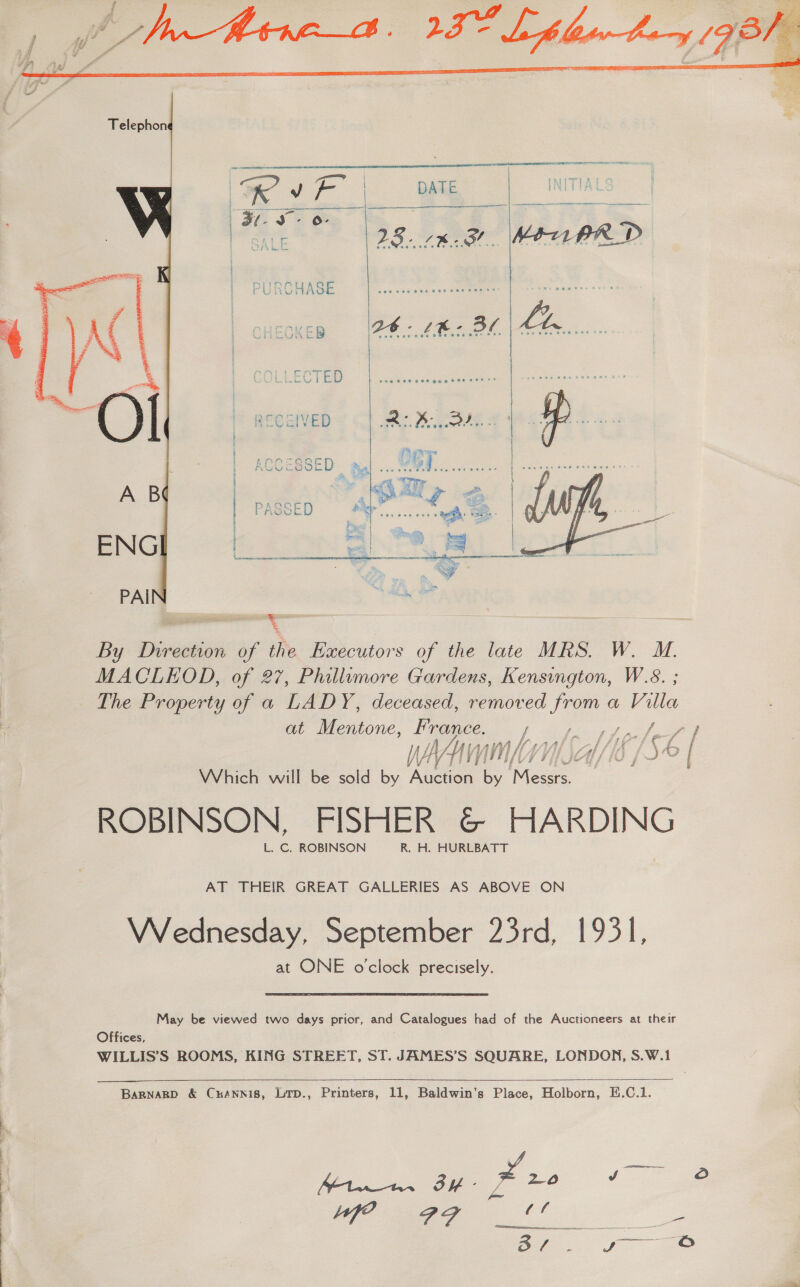 23rd September 1931
Telephon
R & F DATE INITIALS
31-5-0-
SALE 23.IX.31 HOWARD
W
K
PURCHASE
CHECKED 26-IX-31
COLLECTED
Ol
RECEIVED 2.X.31
ACCESSED OCT
A B
PASSED
ENG
PAIN
By Direction of the Executors of the late MRS. W. M.
MACLEOD, of 27, Phillimore Gardens, Kensington, W.8. ;
The Property of a LADY, deceased, removed from a Villa
at Mentone, France.
Which will be sold by Auction by Messrs.
ROBINSON, FISHER & HARDING
L. C. ROBINSON R. H. HURLBATT
AT THEIR GREAT GALLERIES AS ABOVE ON
Wednesday, September 23rd, 1931,
at ONE o'clock precisely.
May be viewed two days prior, and Catalogues had of the Auctioneers at their
Offices,
WILLIS'S ROOMS, KING STREET, ST. JAMES'S SQUARE, LONDON, S.W.1
BARNARD & CRANNIS, LTD., Printers, 11, Baldwin's Place, Holborn, E.C.1.
34 - £20
99 11
31 . 5 — 0